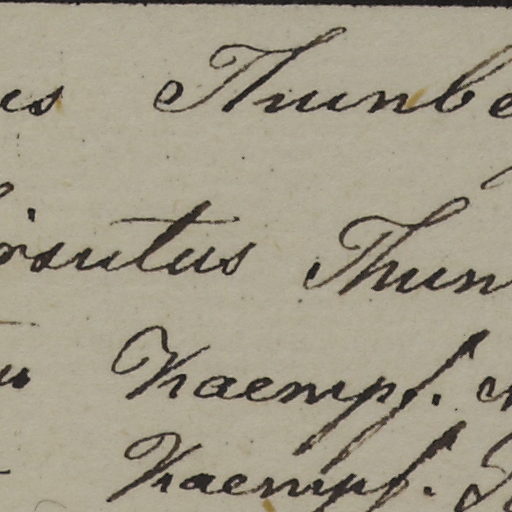 us Thunbe
hirsutus Thun
Kaempf.
Kaempf.